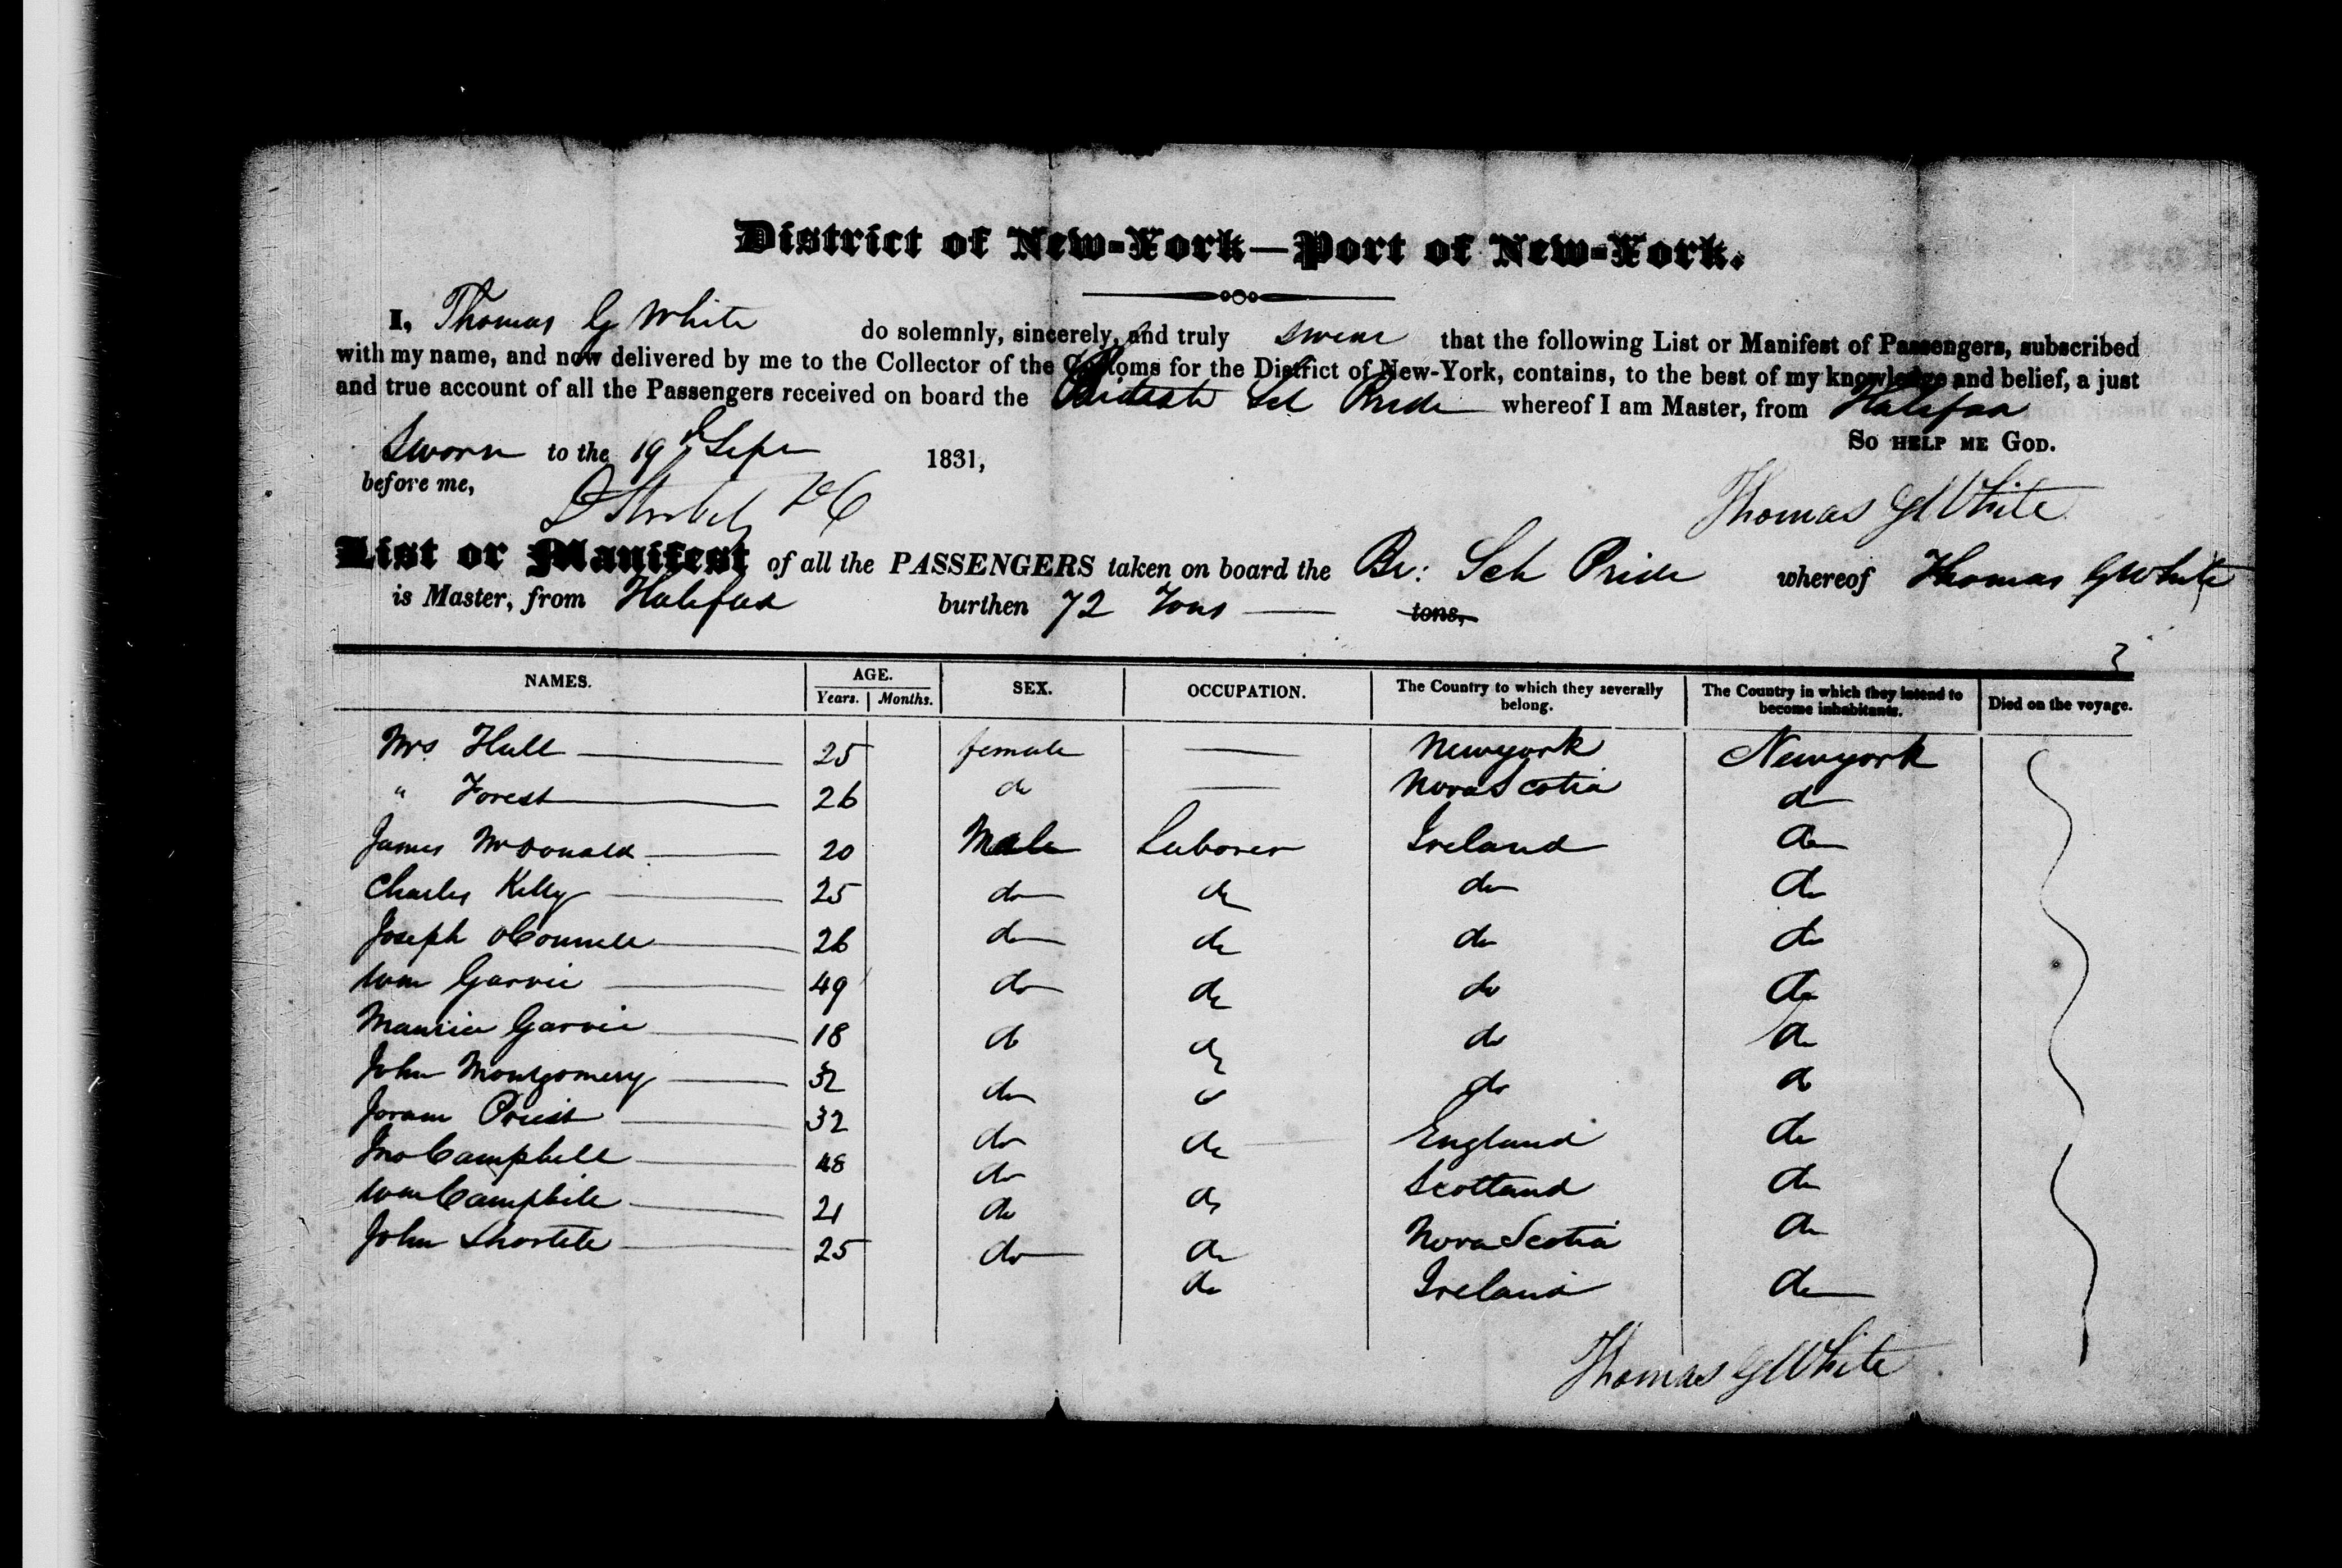 District of New-York—Port of New-York.
I, Thomas G White do solemnly, sincerely, and truly swear that the following List or Manifest of Passengers, subscribed
with my name, and now delivered by me to the Collector of the Customs for the District of New-York, contains, to the best of my knowledge and belief, a just
and true account of all the Passengers received on board the British Sch Pride whereof I am Master, from Halifax
So help me God.
Sworn to the 19th Sepr 1831,
before me,
Thomas G White
List or Manifest of all the PASSENGERS taken on board the Br: Sch Pride whereof Thomas G White
is Master, from Halifax burthen 72 Tons tons,
NAMES. AGE. Years. Months. SEX. OCCUPATION. The Country to which they severally belong. The Country in which they intend to become inhabitants. Died on the voyage.
Mrs Hall 25 female — Newyork Newyork
" Forest 26 do — Nova Scotia do
James McDonald 20 Male Laborer Ireland do
Charles Kelly 25 do do do do
Joseph OConnell 26 do do do do
Wm Garvie 49 do do do do
Maurice Garvie 18 do do do do
John Montgomery 32 do do do do
Joram Priest 32 do do England do
Jno Campbell 48 do do Scotland do
Wm Campbell 21 do do Nova Scotia do
John Shortele 25 do do Ireland do
do
Thomas G White